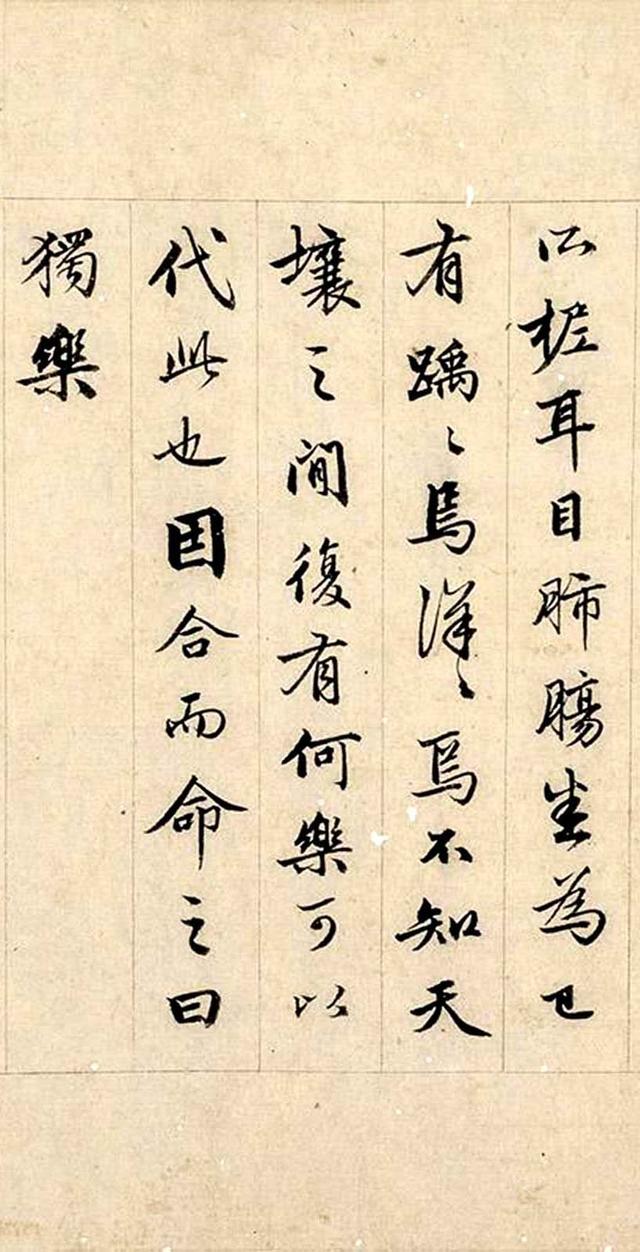 所柅耳目肺腸悉為己
有踽〻焉洋〻焉不知天
壤之間復有何樂可以
代此也因合而命之曰
獨樂